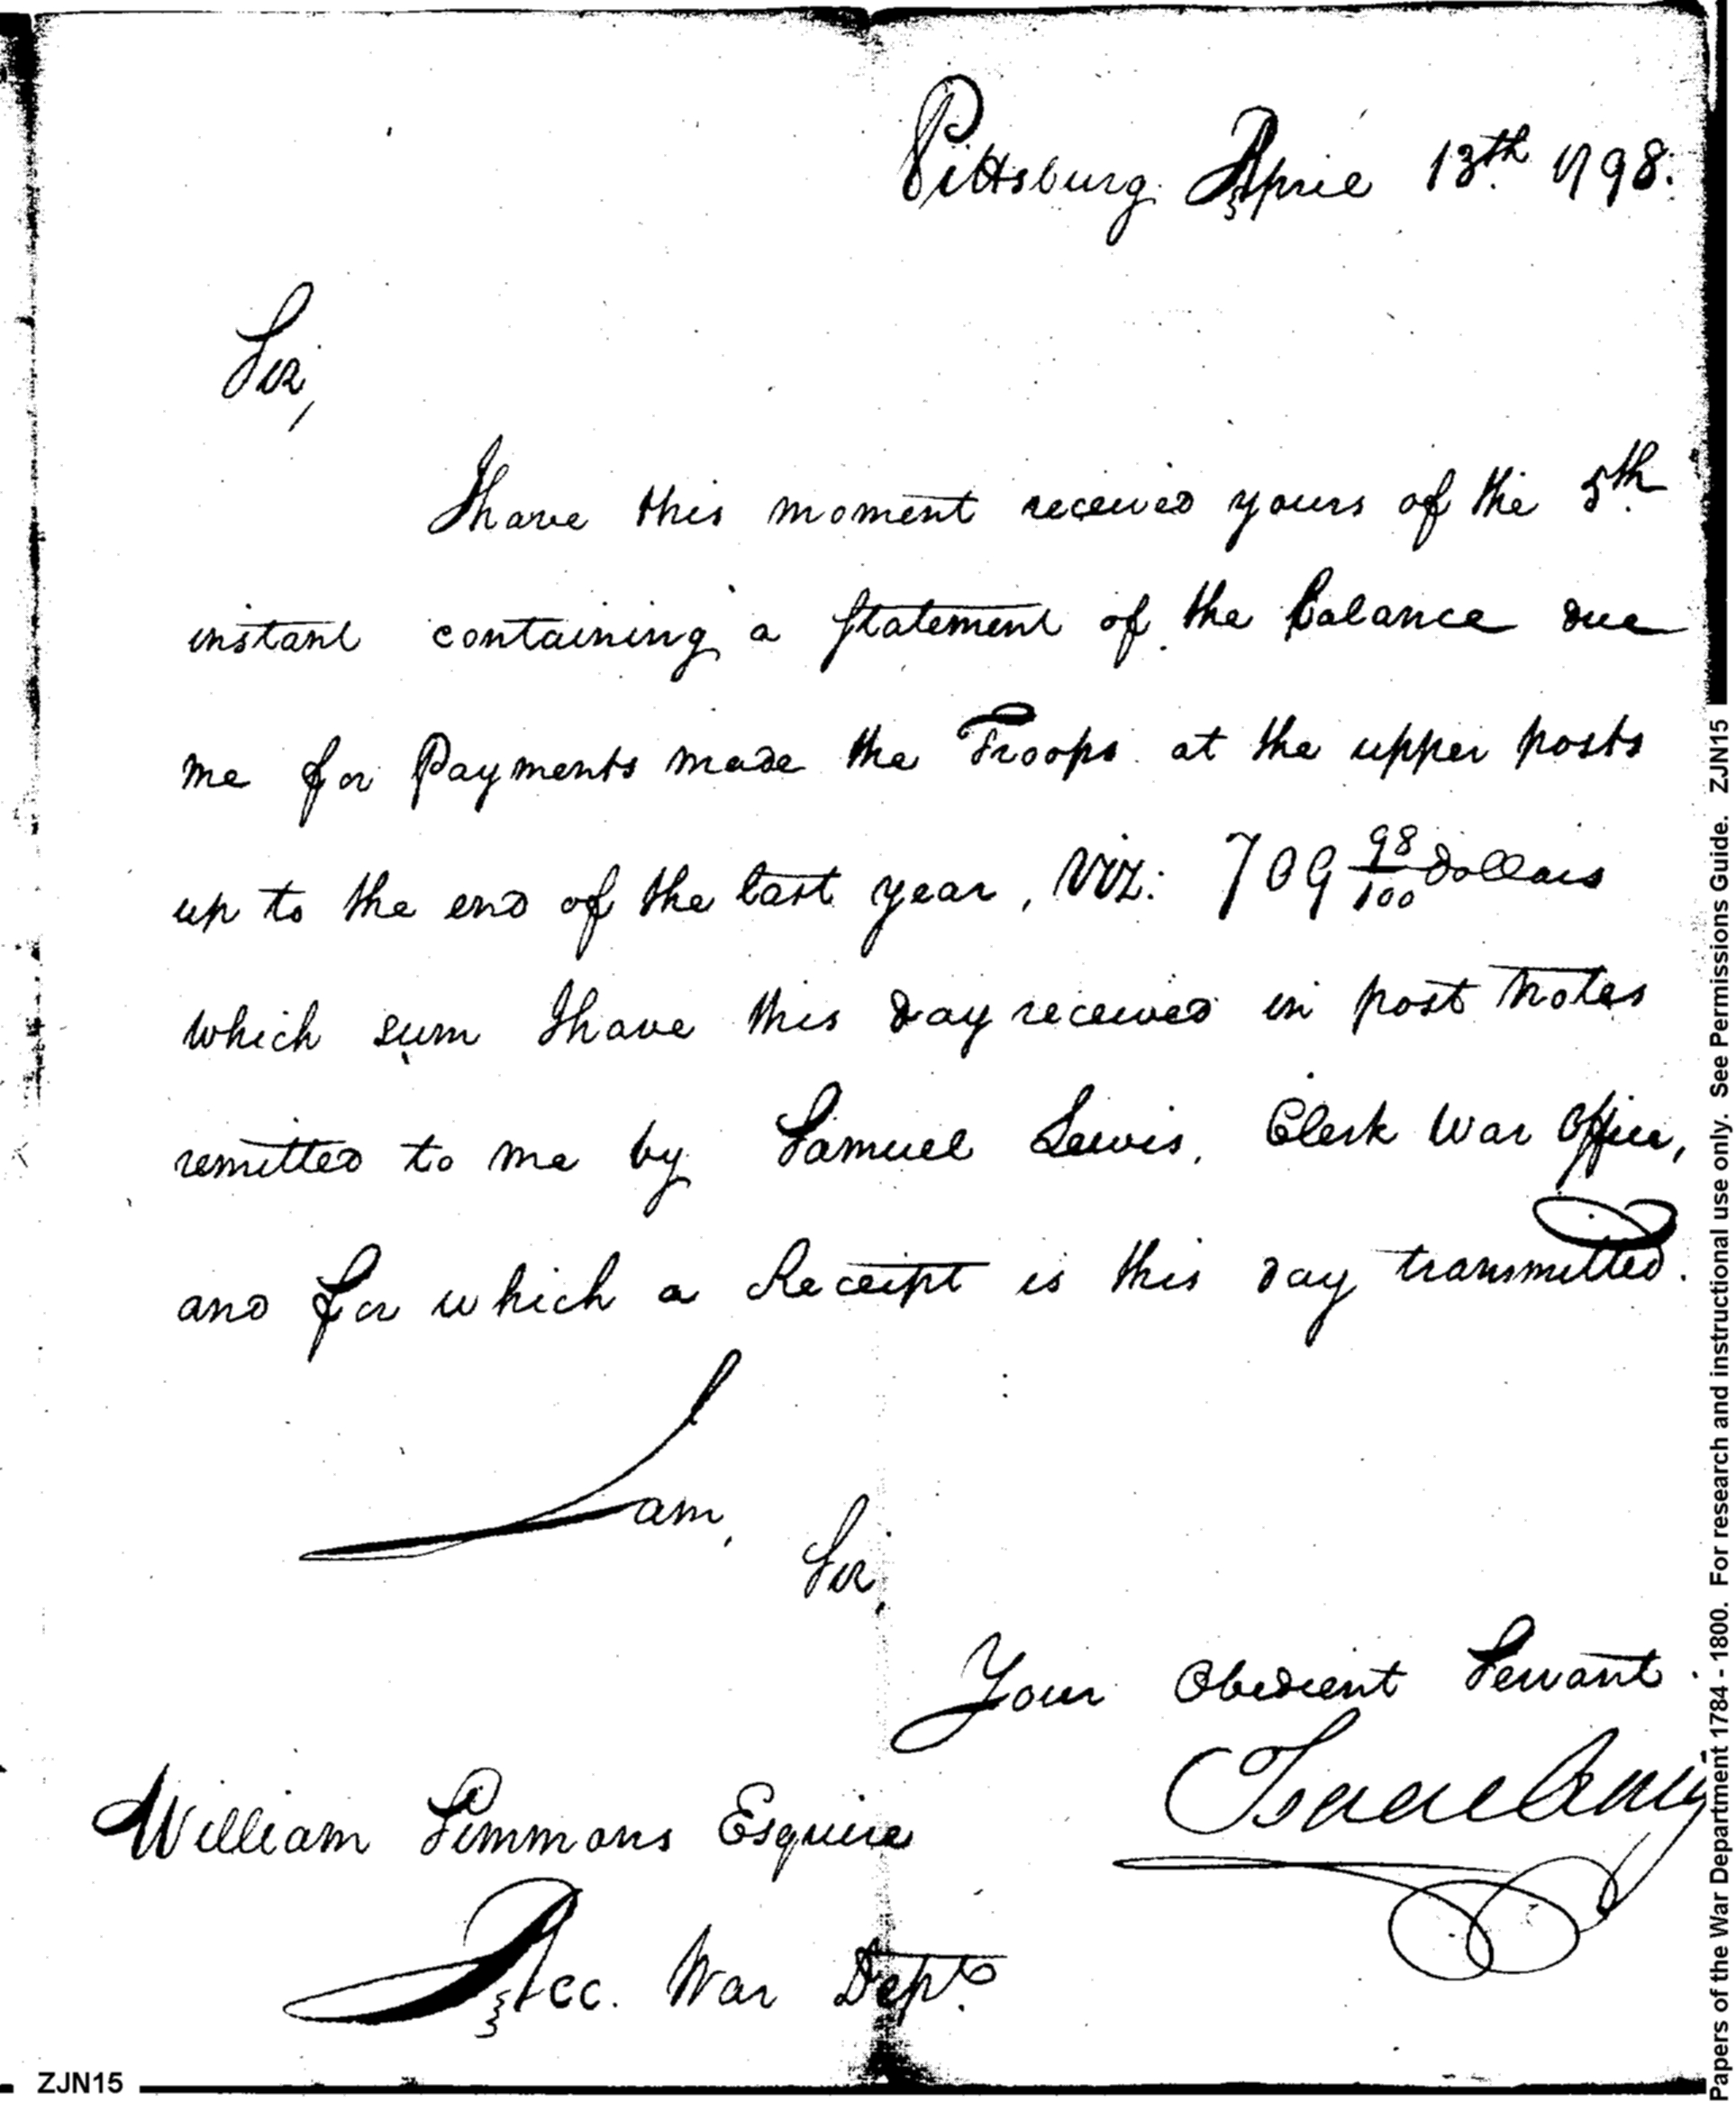 Pittsburg April 13th 1798.
Sir,
I have this moment received yours of the 5th
instant containing a Statement of the Balance due
me for Payments made the Troops at the upper posts
up to the end of the last year, Viz: 709 98/100 dollars
which sum I have this day received in post Notes
remitted to me by Samuel Lewis, Clerk War Office,
and for which a Receipt is this day transmitted.
I am,
Sir,
Your Obedient Servant
Isaac Craig
William Simmons Esquire
Acc. War Dept.
ZJN15
Papers of the War Department 1784 - 1800. For research and instructional use only. See Permissions Guide. ZJN15